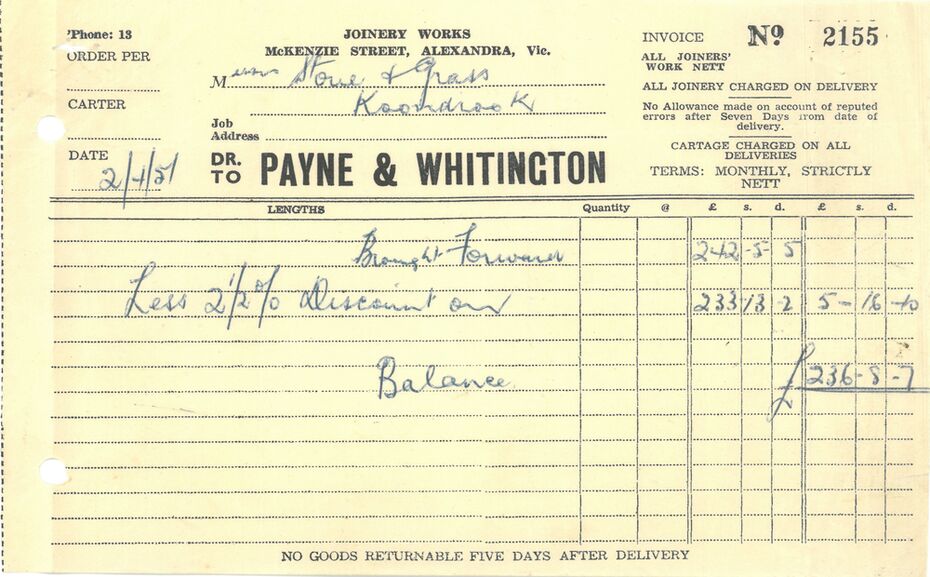 'Phone: 13
ORDER PER
CARTER
DATE 2/4/51
JOINERY WORKS
McKENZIE STREET, ALEXANDRA, Vic.
Messrs Stone & Grass
Koondrook
Job
Address
DR. TO PAYNE & WHITINGTON
INVOICE No 2155
ALL JOINERS'
WORK NETT
ALL JOINERY CHARGED ON DELIVERY
No Allowance made on account of reputed
errors after Seven Days from date of
delivery.
CARTAGE CHARGED ON ALL
DELIVERIES
TERMS: MONTHLY, STRICTLY
NETT
LENGTHS Quantity @ £ s. d. £ s. d.
Brought Forward 242-5-5
Less 2 1/2% Discount on 233 13 2 5-16-10
Balance £236-8-7
NO GOODS RETURNABLE FIVE DAYS AFTER DELIVERY